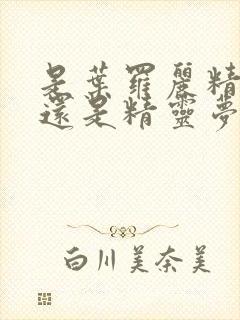 是葉羅麗精
還是精靈夢
白川美奈美